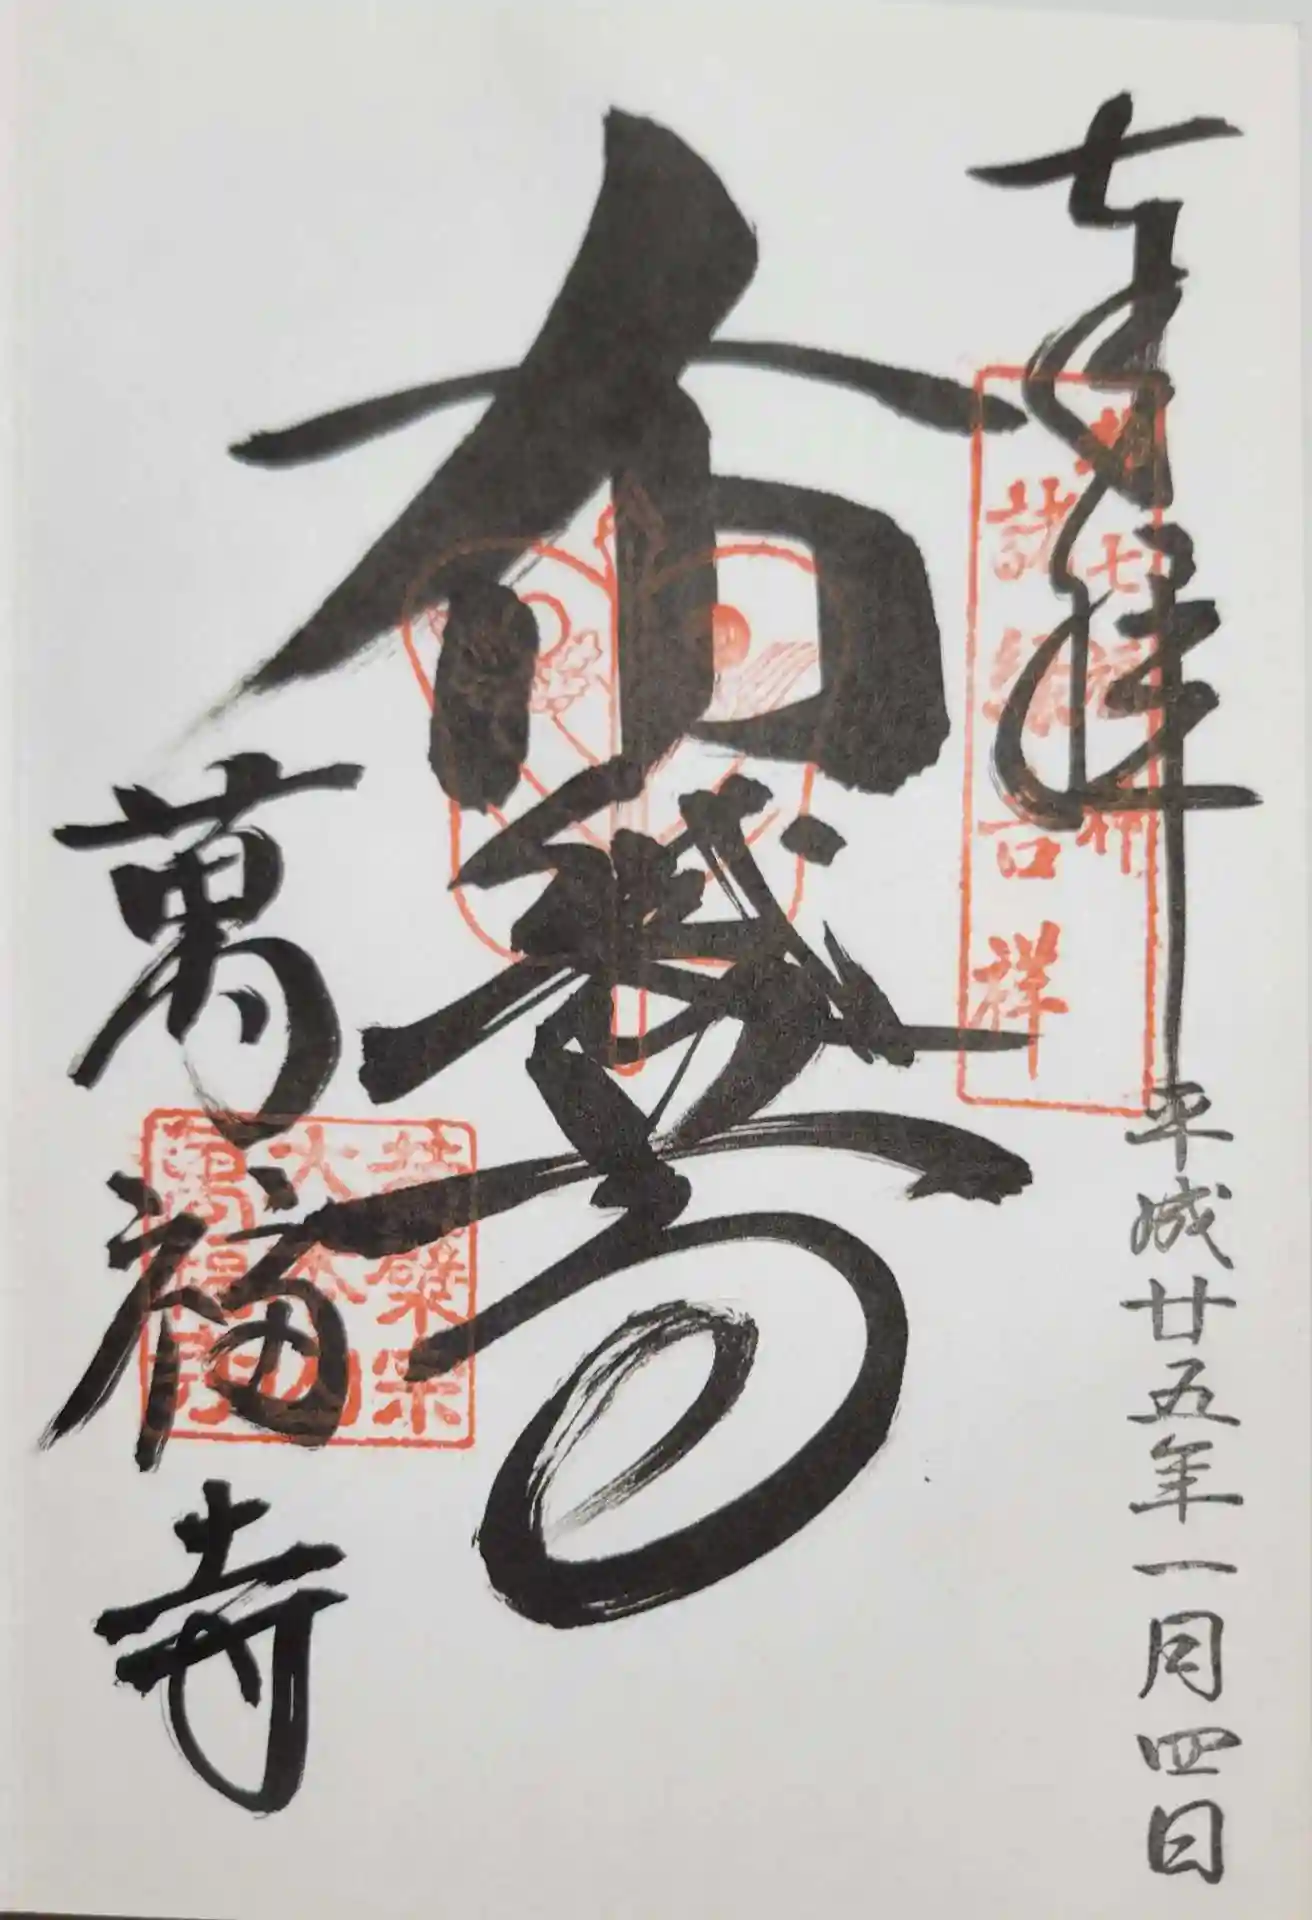 奉拝
平成廿五年一月四日
都七福神
諸縁吉祥
布袋尊
萬福寺
黄檗宗
大本山
萬福寺